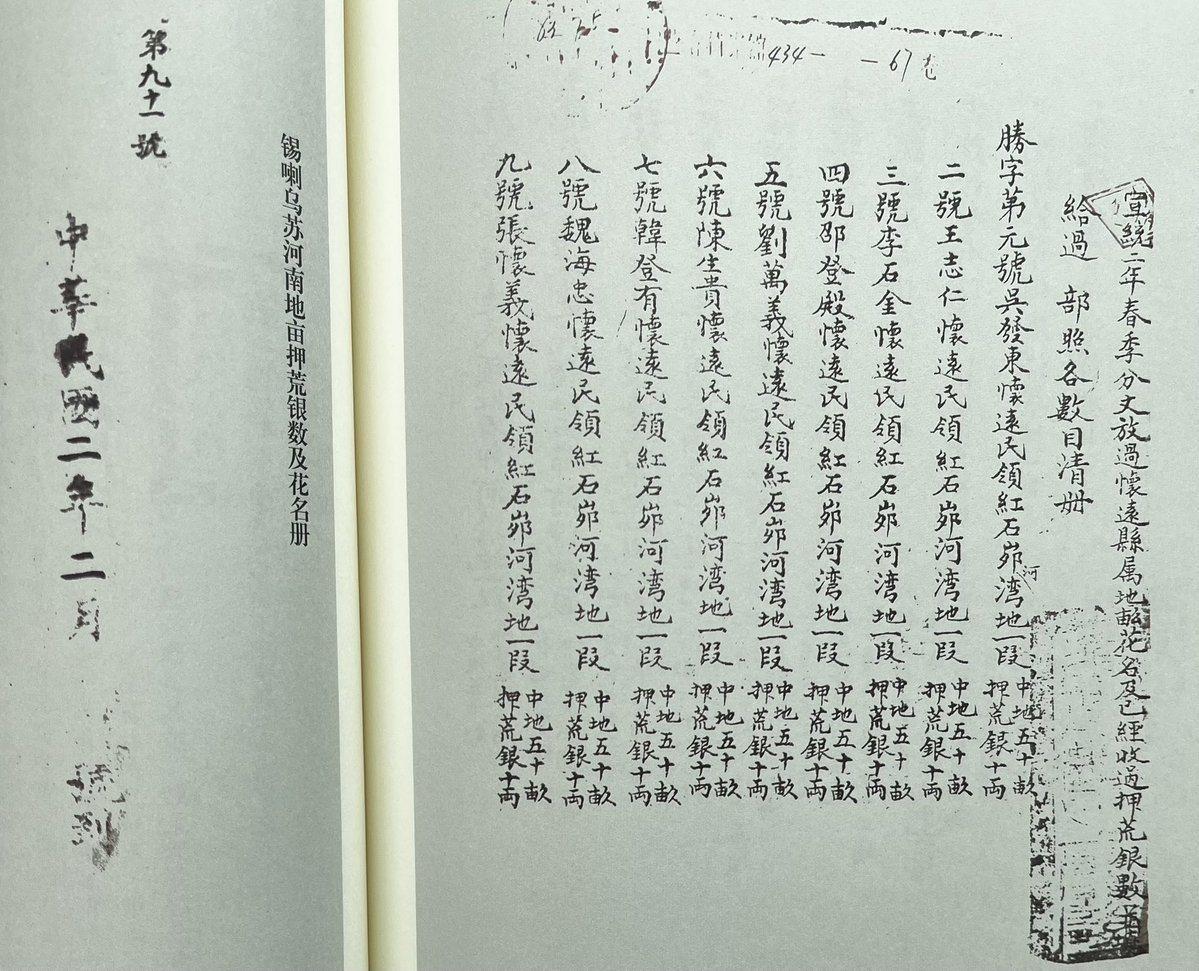 宣統二年春季分丈放過懷遠縣属地畝花名及已經收過押荒銀數
給過 部照各數目清册
勝字第元號吳發東懷遠民領紅石峁河湾地一段 中地五十畝 押荒銀十両
二號王志仁懷遠民領紅石峁河湾地一段 中地五十畝 押荒銀十両
三號李石金懷遠民領紅石峁河湾地一段 中地五十畝 押荒銀十両
四號邵登殿懷遠民領紅石峁河湾地一段 中地五十畝 押荒銀十両
五號劉萬義懷遠民領紅石峁河湾地一段 中地五十畝 押荒銀十両
六號陳生貴懷遠民領紅石峁河湾地一段 中地五十畝 押荒銀十両
七號韓登有懷遠民領紅石峁河湾地一段 中地五十畝 押荒銀十両
八號魏海忠懷遠民領紅石峁河湾地一段 中地五十畝 押荒銀十両
九號張懷義懷遠民領紅石峁河湾地一段 中地五十畝 押荒銀十両
434— —67
锡喇乌苏河南地亩押荒银数及花名册
第九十一號
中華民國二年二月 號到